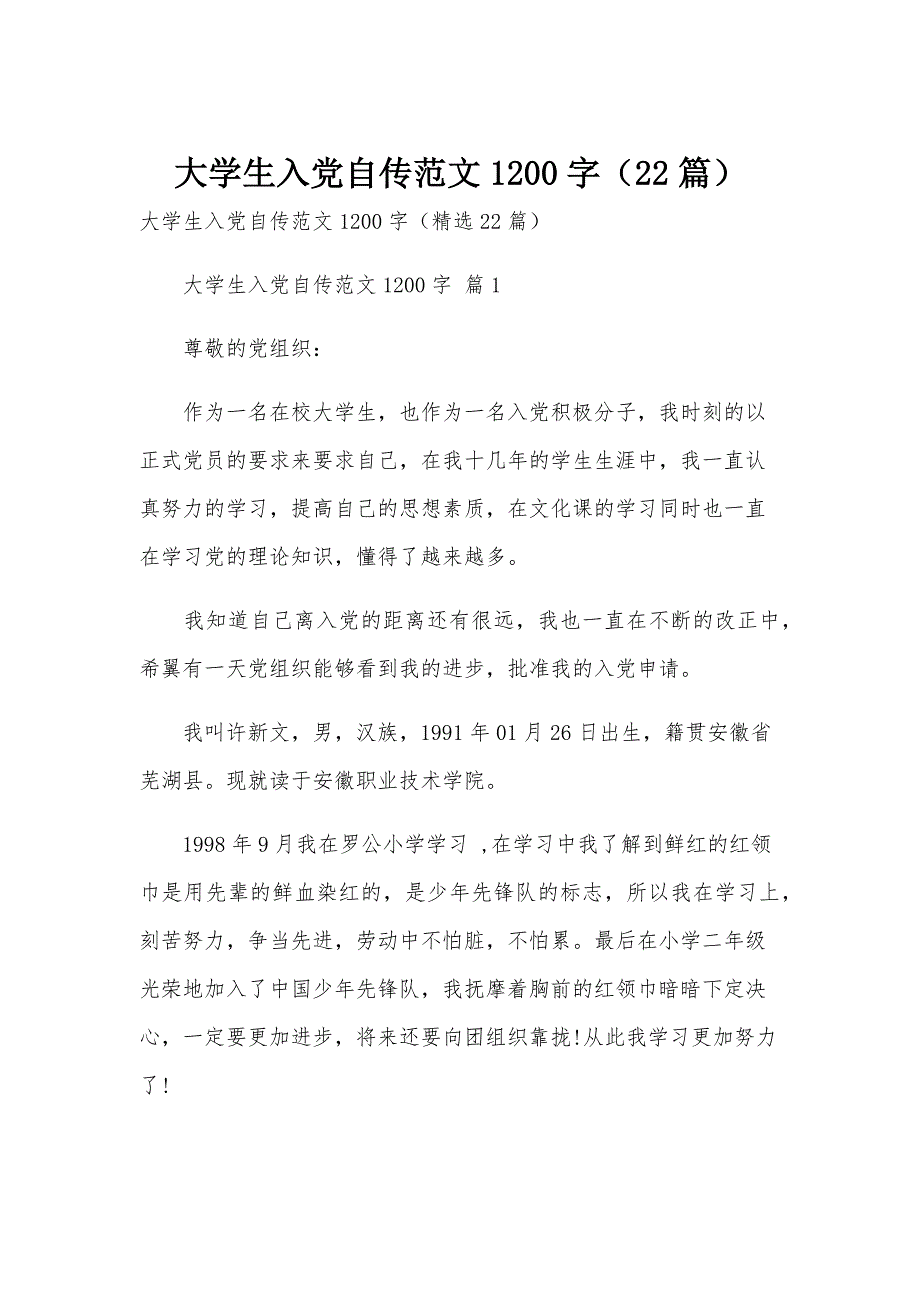 大学生入党自传范文1200字（22篇）
大学生入党自传范文1200字（精选22篇）
大学生入党自传范文1200字 篇1
尊敬的党组织：
作为一名在校大学生，也作为一名入党积极分子，我时刻的以
正式党员的要求来要求自己，在我十几年的学生生涯中，我一直认
真努力的学习，提高自己的思想素质，在文化课的学习同时也一直
在学习党的理论知识，懂得了越来越多。
我知道自己离入党的距离还有很远，我也一直在不断的改正中，
希翼有一天党组织能够看到我的进步，批准我的入党申请。
我叫许新文，男，汉族，1991年01月26日出生，籍贯安徽省
芜湖县。现就读于安徽职业技术学院。
1998年9月我在罗公小学学习 ,在学习中我了解到鲜红的红领
巾是用先辈的鲜血染红的，是少年先锋队的标志，所以我在学习上，
刻苦努力，争当先进，劳动中不怕脏，不怕累。最后在小学二年级
光荣地加入了中国少年先锋队，我抚摩着胸前的红领巾暗暗下定决
心，一定要更加进步，将来还要向团组织靠拢!从此我学习更加努力
了!